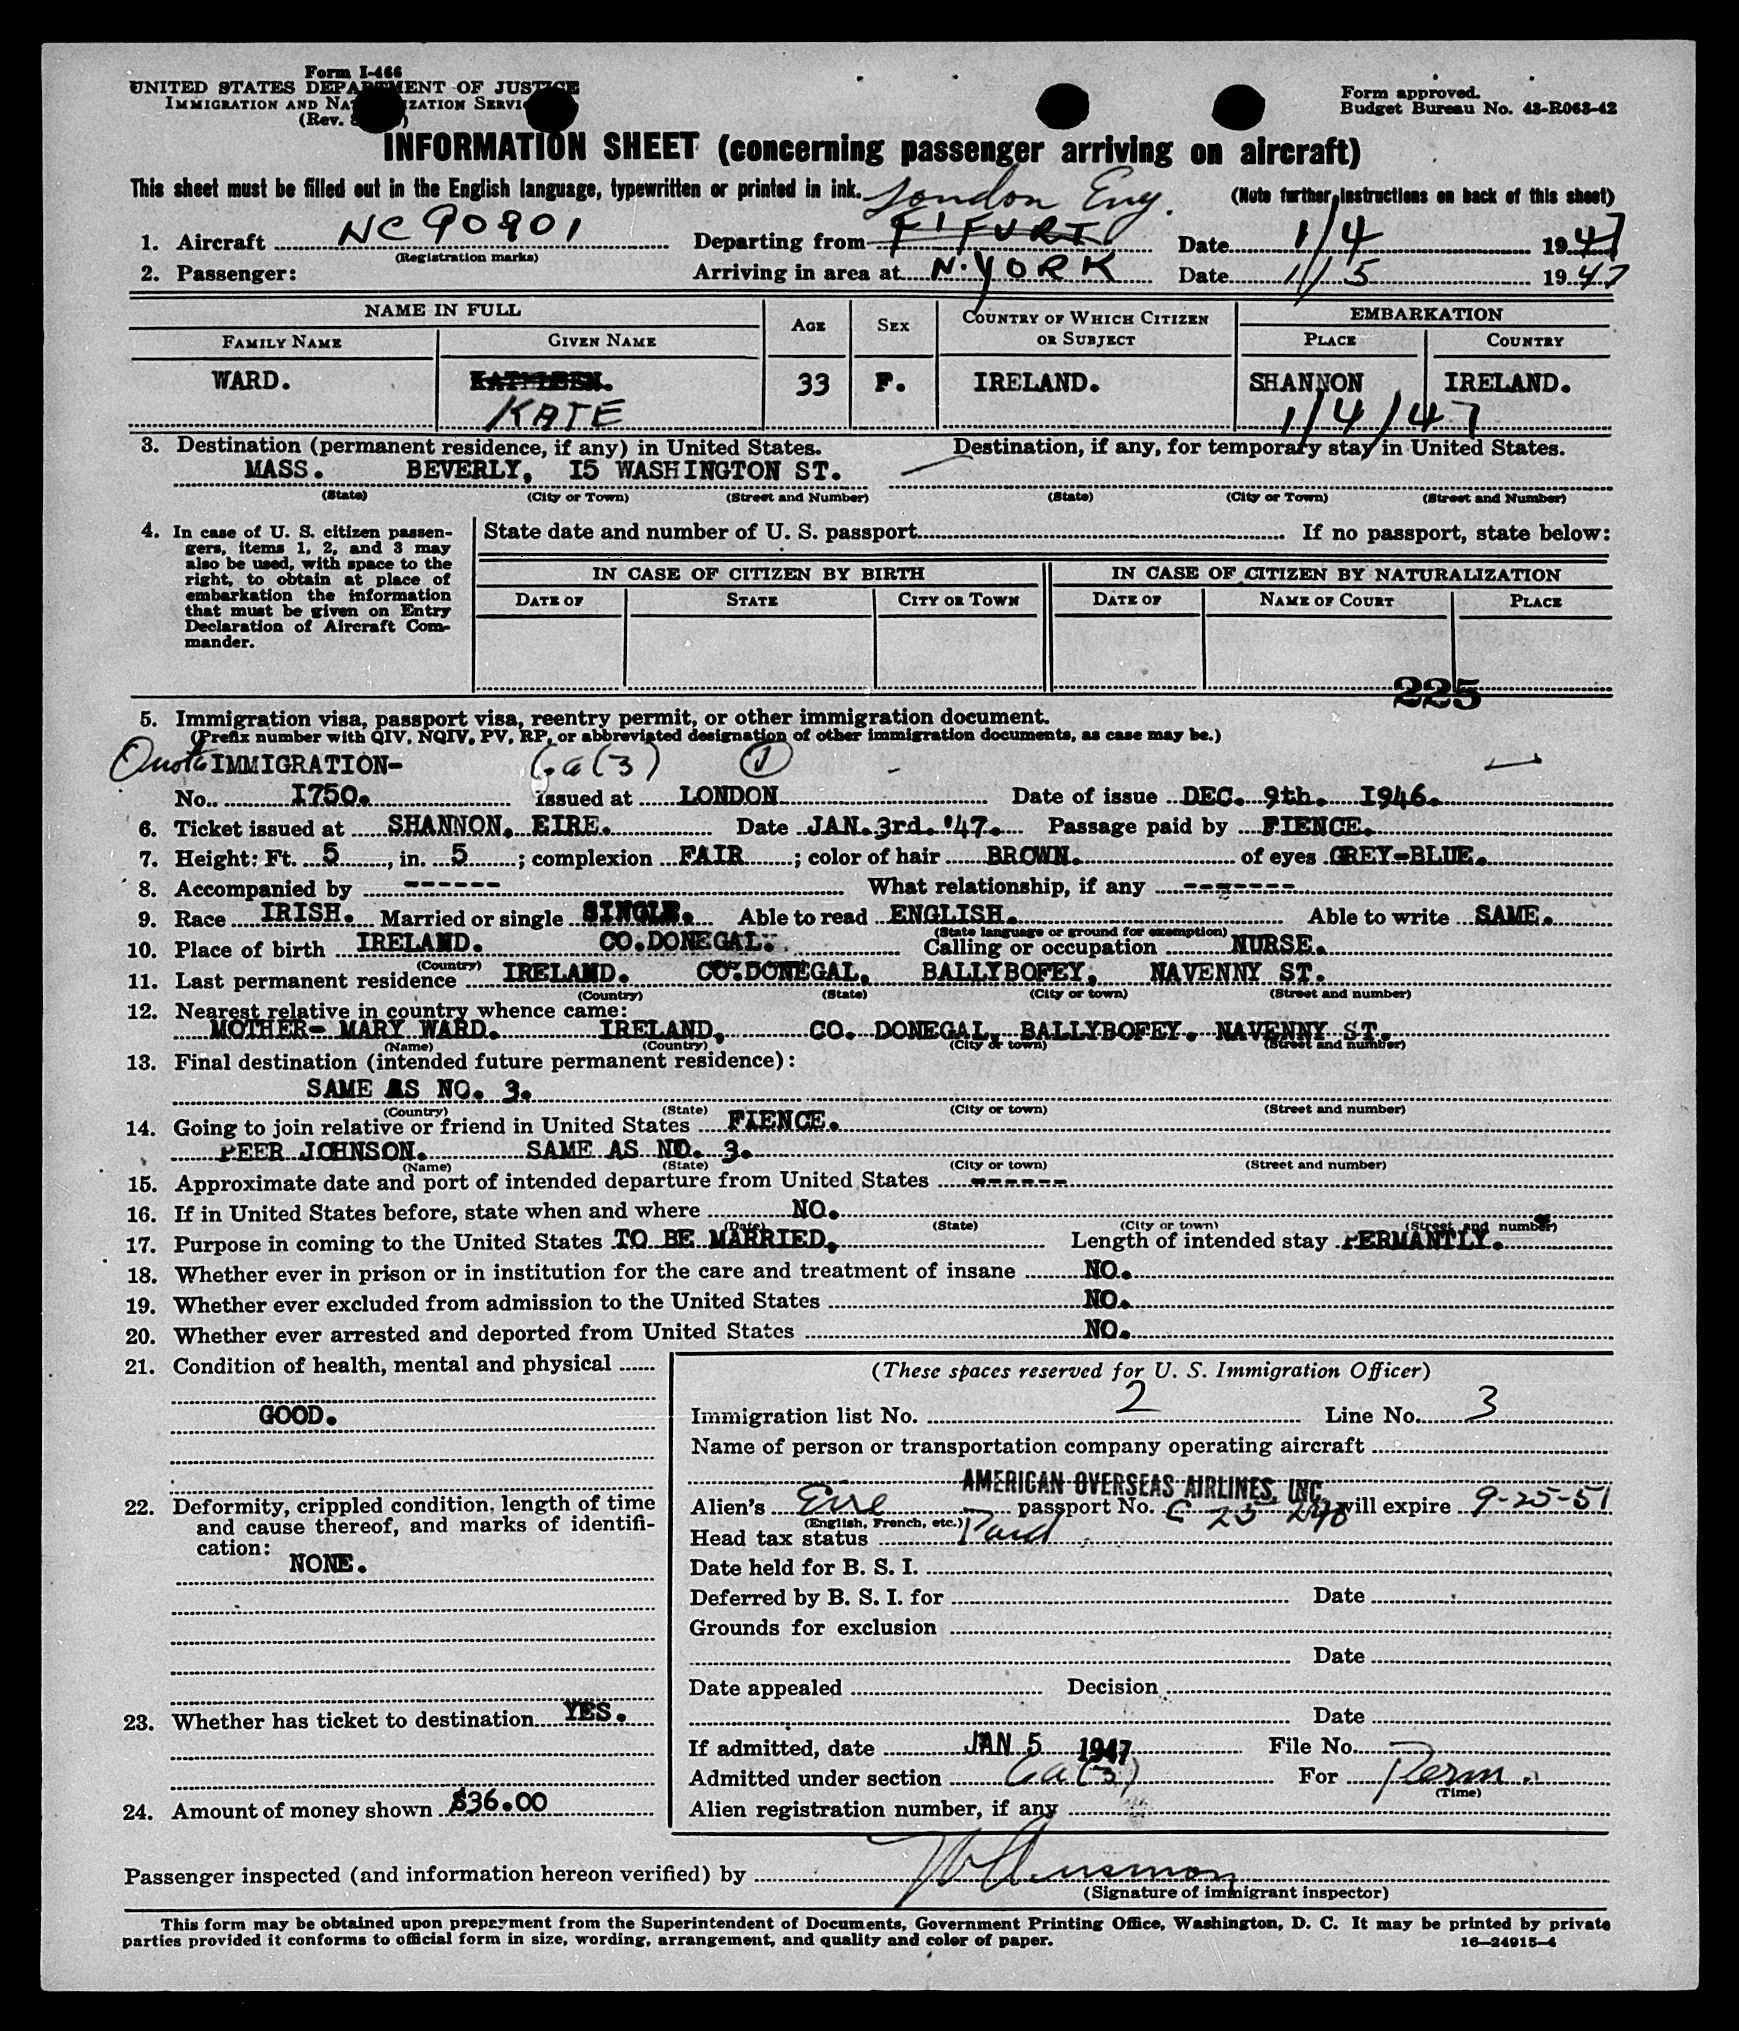 Form I-466
UNITED STATES DEPARTMENT OF JUSTICE
IMMIGRATION AND NATURALIZATION SERVICE
(Rev.
Form approved.
Budget Bureau No. 43-R063-42
INFORMATION SHEET (concerning passenger arriving on aircraft)
This sheet must be filled out in the English language, typewritten or printed in ink. (Note further instructions on back of this sheet)
London Eng.
1. Aircraft NC 90901 Departing from F'FURT Date 1/4 1947
(Registration marks)
2. Passenger: Arriving in area at N.YORK Date 1/5 1947
NAME IN FULL AGE SEX COUNTRY OF WHICH CITIZEN OR SUBJECT EMBARKATION
FAMILY NAME GIVEN NAME PLACE COUNTRY
WARD. KATHLEEN. 33 F. IRELAND. SHANNON IRELAND.
KATE 1/4/47
3. Destination (permanent residence, if any) in United States. Destination, if any, for temporary stay in United States.
MASS. BEVERLY, I5 WASHINGTON ST.
(State) (City or Town) (Street and Number) (State) (City or Town) (Street and Number)
4. In case of U. S. citizen passengers, items 1, 2, and 3 may also be used, with space to the right, to obtain at place of embarkation the information that must be given on Entry Declaration of Aircraft Commander.
State date and number of U. S. passport If no passport, state below:
IN CASE OF CITIZEN BY BIRTH IN CASE OF CITIZEN BY NATURALIZATION
DATE OF STATE CITY OR TOWN DATE OF NAME OF COURT PLACE
225
5. Immigration visa, passport visa, reentry permit, or other immigration document.
(Prefix number with QIV, NQIV, PV, RP, or abbreviated designation of other immigration documents, as case may be.)
Quota IMMIGRATION- 6a(3)
No. I750. Issued at LONDON Date of issue DEC. 9th. I946.
6. Ticket issued at SHANNON, EIRE. Date JAN. 3rd. '47. Passage paid by FIENCE.
7. Height: Ft. 5, in. 5; complexion FAIR; color of hair BROWN. of eyes GREY-BLUE.
8. Accompanied by ------ What relationship, if any -------
9. Race IRISH. Married or single SINGLE. Able to read ENGLISH. Able to write SAME.
(State language or ground for exemption)
10. Place of birth IRELAND. CO.DONEGAL. Calling or occupation NURSE.
(Country)
11. Last permanent residence IRELAND. CO.DONEGAL, BALLYBOFEY, NAVENNY ST.
(Country) (State) (City or town) (Street and number)
12. Nearest relative in country whence came:
MOTHER- MARY WARD. IRELAND, CO. DONEGAL, BALLYBOFEY. NAVENNY ST.
(Name) (Country) (City or town) (Street and number)
13. Final destination (intended future permanent residence):
SAME AS NO. 3.
(Country) (State) (City or town) (Street and number)
14. Going to join relative or friend in United States FIENCE.
PEER JOHNSON. SAME AS NO. 3.
(Name) (State) (City or town) (Street and number)
15. Approximate date and port of intended departure from United States ------
16. If in United States before, state when and where NO.
(Date) (State) (City or town) (Street and number)
17. Purpose in coming to the United States TO BE MARRIED, Length of intended stay PERMANTLY.
18. Whether ever in prison or in institution for the care and treatment of insane NO.
19. Whether ever excluded from admission to the United States NO.
20. Whether ever arrested and deported from United States NO.
21. Condition of health, mental and physical
GOOD.
22. Deformity, crippled condition, length of time and cause thereof, and marks of identification:
NONE.
23. Whether has ticket to destination YES.
24. Amount of money shown $36.00
(These spaces reserved for U. S. Immigration Officer)
Immigration list No. 2 Line No. 3
Name of person or transportation company operating aircraft
AMERICAN OVERSEAS AIRLINES, INC.
Alien's Eire passport No. C 25 will expire 9-25-51
(English, French, etc.)
Head tax status Paid
Date held for B. S. I.
Deferred by B. S. I. for Date
Grounds for exclusion
Date
Date appealed Decision
Date
If admitted, date JAN 5 1947 File No.
Admitted under section 6a(3) For Perm.
(Time)
Alien registration number, if any
Passenger inspected (and information hereon verified) by
(Signature of immigrant inspector)
This form may be obtained upon prepayment from the Superintendent of Documents, Government Printing Office, Washington, D. C. It may be printed by private
parties provided it conforms to official form in size, wording, arrangement, and quality and color of paper. 16—24915-4